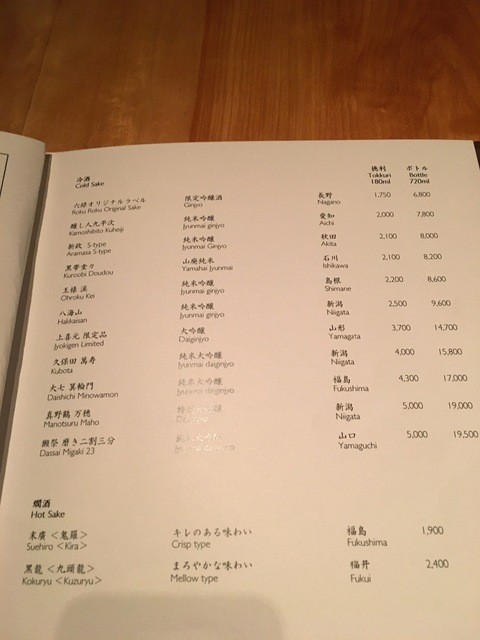 冷酒
Cold Sake
徳利 ボトル
Tokkuri Bottle
180ml 720ml
六緑オリジナルラベル 限定吟醸酒 長野 1,750 6,800
Roku Roku Original Sake Ginjyo Nagano
醸し人九平次 純米吟醸 愛知 2,000 7,800
Kamoshibito Kuheiji Jyunmai ginjyo Aichi
新政 S-type 純米吟醸 秋田 2,100 8,000
Aramasa S-type Jyunmai Ginjyo Akita
黒帯堂々 山廃純米 石川 2,100 8,200
Kuroobi Doudou Yamahai Jyunmai Ishikawa
王祿 渓 純米吟醸 島根 2,200 8,600
Ohroku Kei Jyunmai ginjyo Shimane
八海山 純米吟醸 新潟 2,500 9,600
Hakkaisan Jyunmai ginjyo Niigata
上喜元 限定品 大吟醸 山形 3,700 14,700
Jyokigen Limited Daiginjyo Yamagata
久保田 萬寿 純米大吟醸 新潟 4,000 15,800
Kubota Jyunmai daiginjyo Niigata
大七 箕輪門 純米大吟醸 福島 4,300 17,000
Daishichi Minowamon Jyunmai daiginjyo Fukushima
真野鶴 万穂 新潟 5,000 19,000
Manotsuru Maho Niigata
獺祭 磨き二割三分 山口 5,000 19,500
Dassai Migaki 23 Yamaguchi
燗酒
Hot Sake
末廣 <鬼羅> キレのある味わい 福島 1,900
Suehiro <Kira> Crisp type Fukushima
黒龍 <九頭龍> まろやかな味わい 福井 2,400
Kokuryu <Kuzuryu> Mellow type Fukui